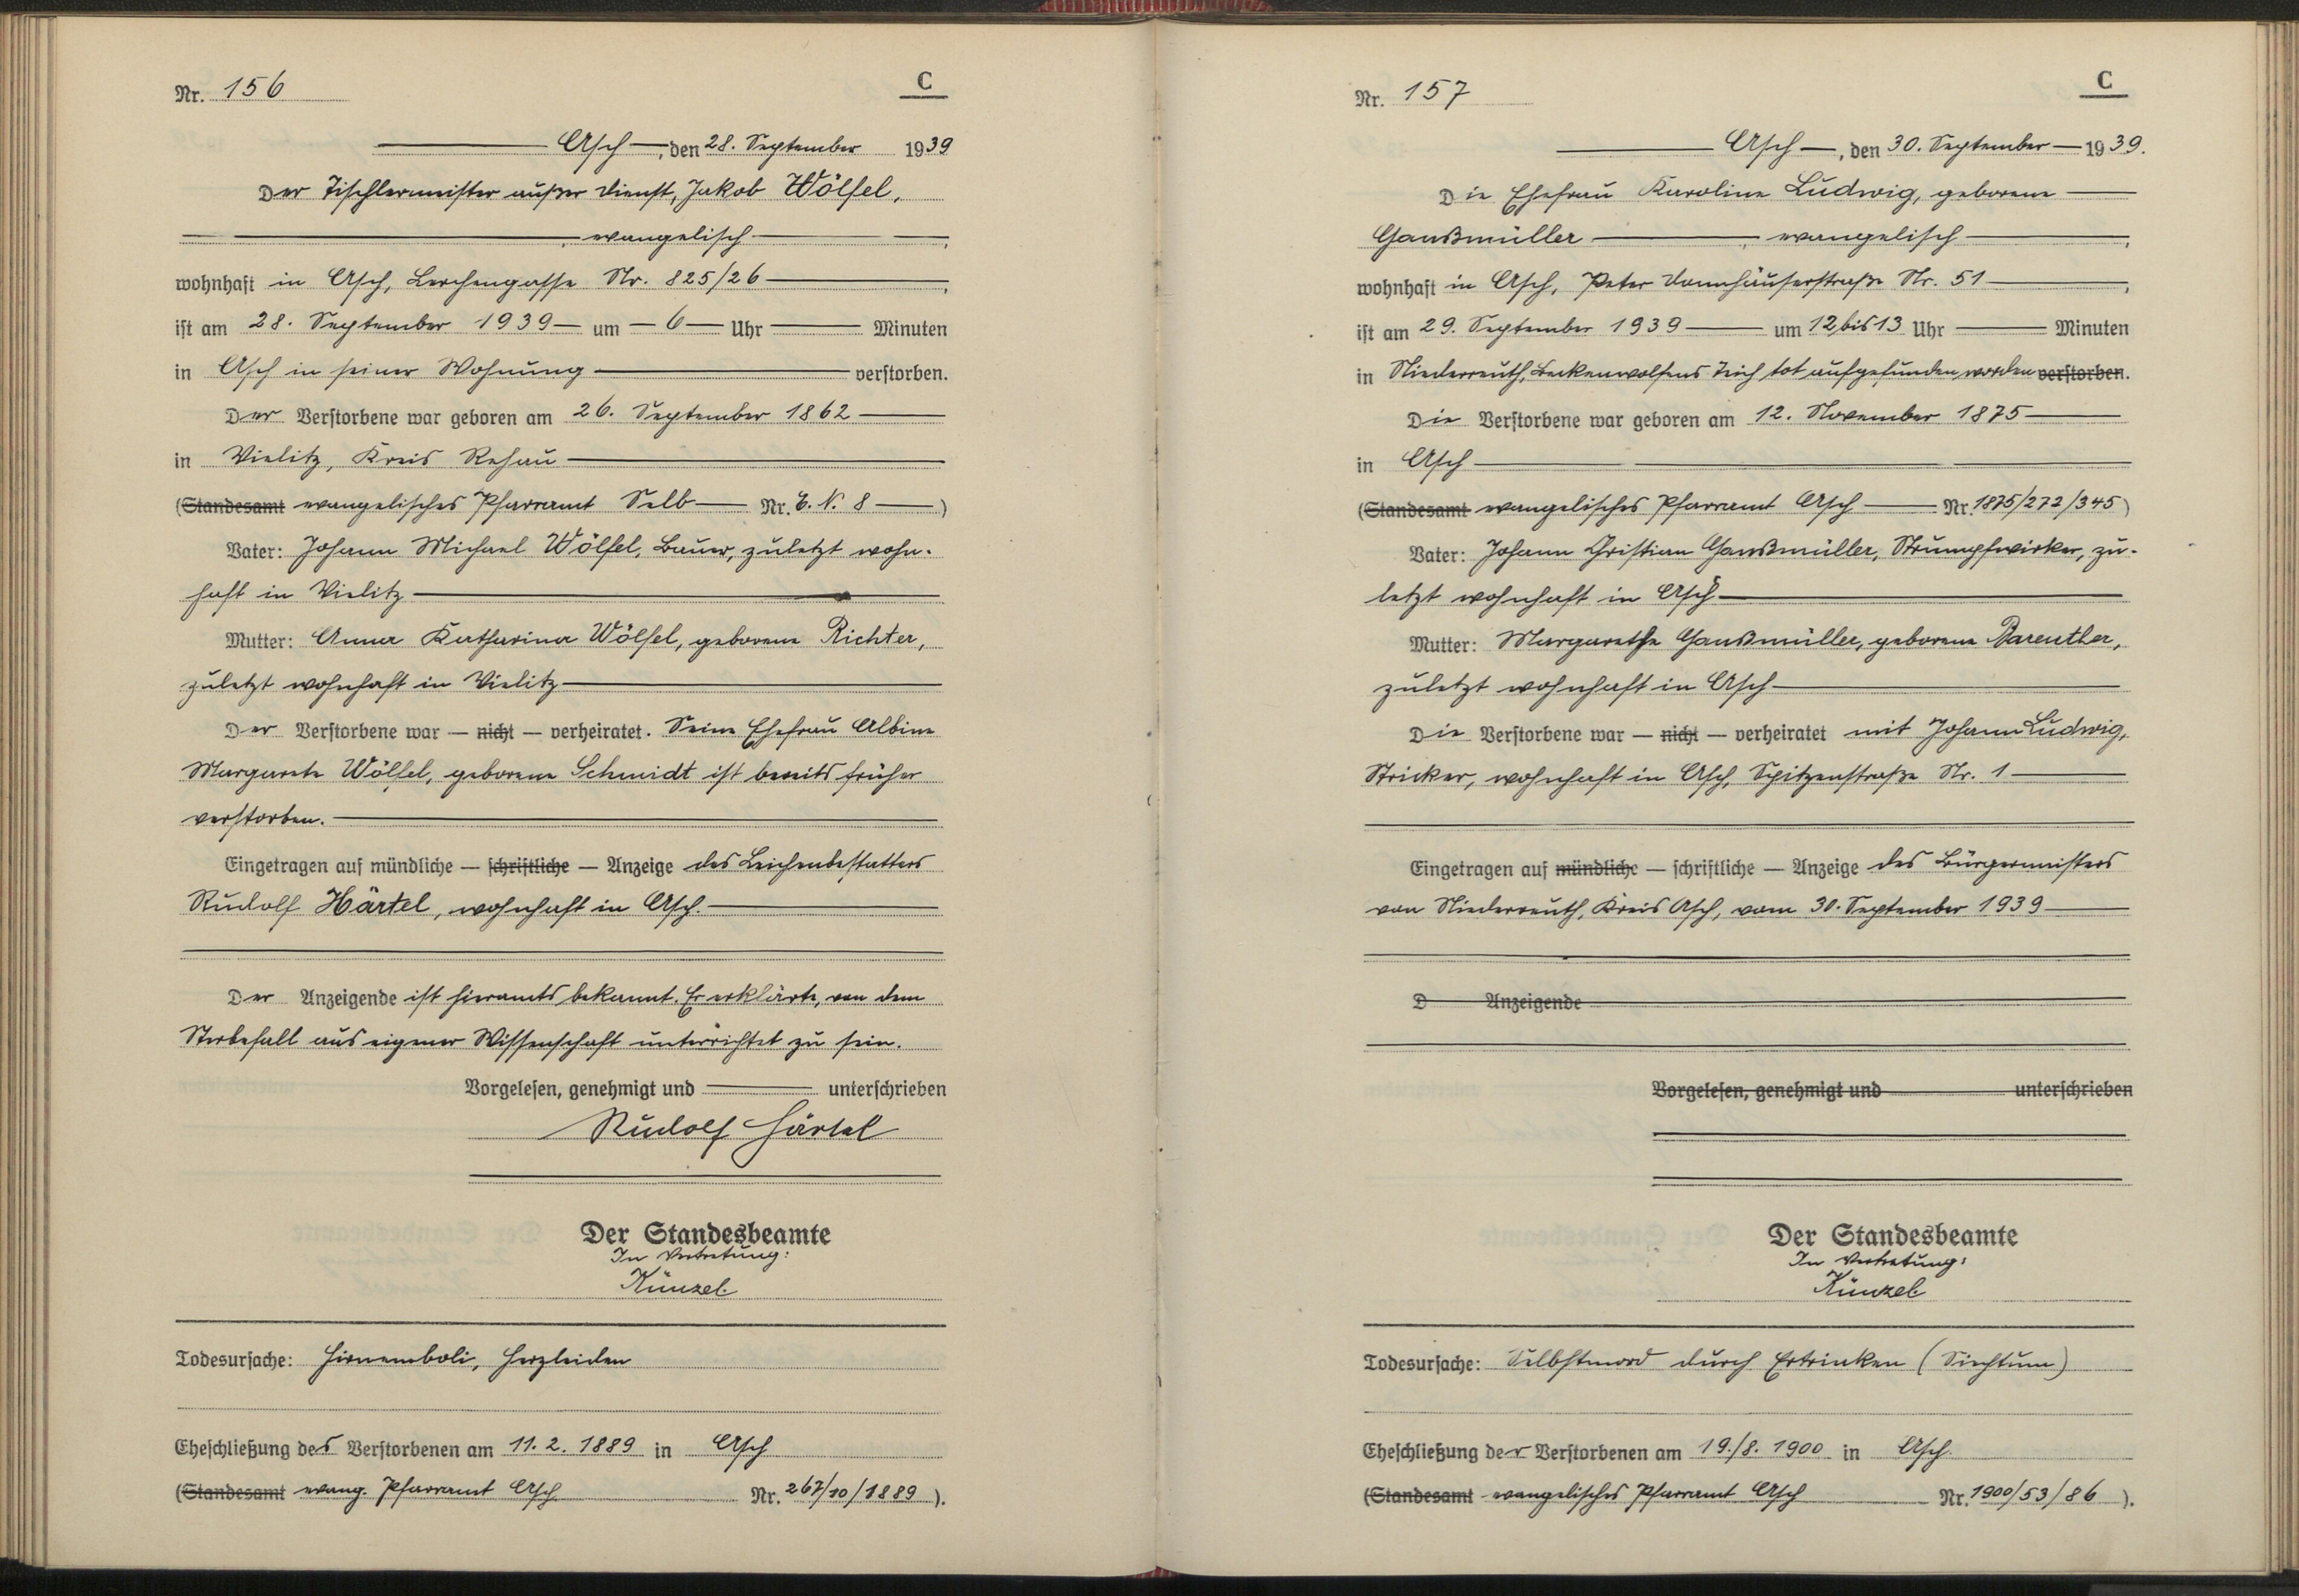 Nr. 156
C
Asch, den 28. September 1939
Der Tischlermeister außer Dienst, Jakob Wölfel,
evangelisch,
wohnhaft in Asch, Lerchengasse Nr. 825/26,
ist am 28. September 1939 um 6 Uhr Minuten
in Asch in seiner Wohnung verstorben.
Der Verstorbene war geboren am 26. September 1862
in Vielitz, Kreis Rehau
(Standesamt evangelisches Pfarramt Selb Nr. E. N. 8)
Vater: Johann Michael Wölfel, Bauer, zuletzt wohn-
haft in Vielitz
Mutter: Anna Katharina Wölfel, geborene Richter,
zuletzt wohnhaft in Vielitz
Der Verstorbene war — nicht — verheiratet. Seine Ehefrau Albine
Margarete Wölfel, geborene Schmidt ist bereits früher
verstorben.
Eingetragen auf mündliche — schriftliche — Anzeige des Leichenbestatters
Rudolf Härtel, wohnhaft in Asch.
Der Anzeigende ist hieramts bekannt. Er erklärte, von dem
Sterbefall aus eigener Wissenschaft unterrichtet zu sein.
Vorgelesen, genehmigt und unterschrieben
Rudolf Härtel
Der Standesbeamte
In Vertretung:
Künzel
Todesursache: Hirnemboli, Herzleiden
Eheschließung des Verstorbenen am 11. 2. 1889 in Asch
(Standesamt evang. Pfarramt Asch Nr. 267/10/1889).
Nr. 157
C
Asch, den 30. September 1939.
Die Ehefrau Karoline Ludwig, geborene
Gansmüller, evangelisch,
wohnhaft in Asch, Peter Donnhäuserstraße Nr. 51,
ist am 29. September 1939 um 12 bis 13 Uhr Minuten
in Niederreuth, Beckenwolfens Teich tot aufgefunden worden verstorben.
Die Verstorbene war geboren am 12. November 1875
in Asch
(Standesamt evangelisches Pfarramt Asch Nr. 1875/272/345)
Vater: Johann Christian Gansmüller, Strumpfwirker, zu-
letzt wohnhaft in Asch
Mutter: Margarethe Gansmüller, geborene Bareuther,
zuletzt wohnhaft in Asch
Die Verstorbene war — nicht — verheiratet mit Johann Ludwig,
Stricker, wohnhaft in Asch, Spitzenstraße Nr. 1
Eingetragen auf mündliche — schriftliche — Anzeige des Bürgermeisters
von Niederreuth, Kreis Asch, vom 30. September 1939
D Anzeigende
Vorgelesen, genehmigt und unterschrieben
Der Standesbeamte
In Vertretung:
Künzel
Todesursache: Selbstmord durch Ertrinken (Siechtum)
Eheschließung der Verstorbenen am 19./8. 1900 in Asch.
(Standesamt evangelisches Pfarramt Asch Nr. 1900/53/86).